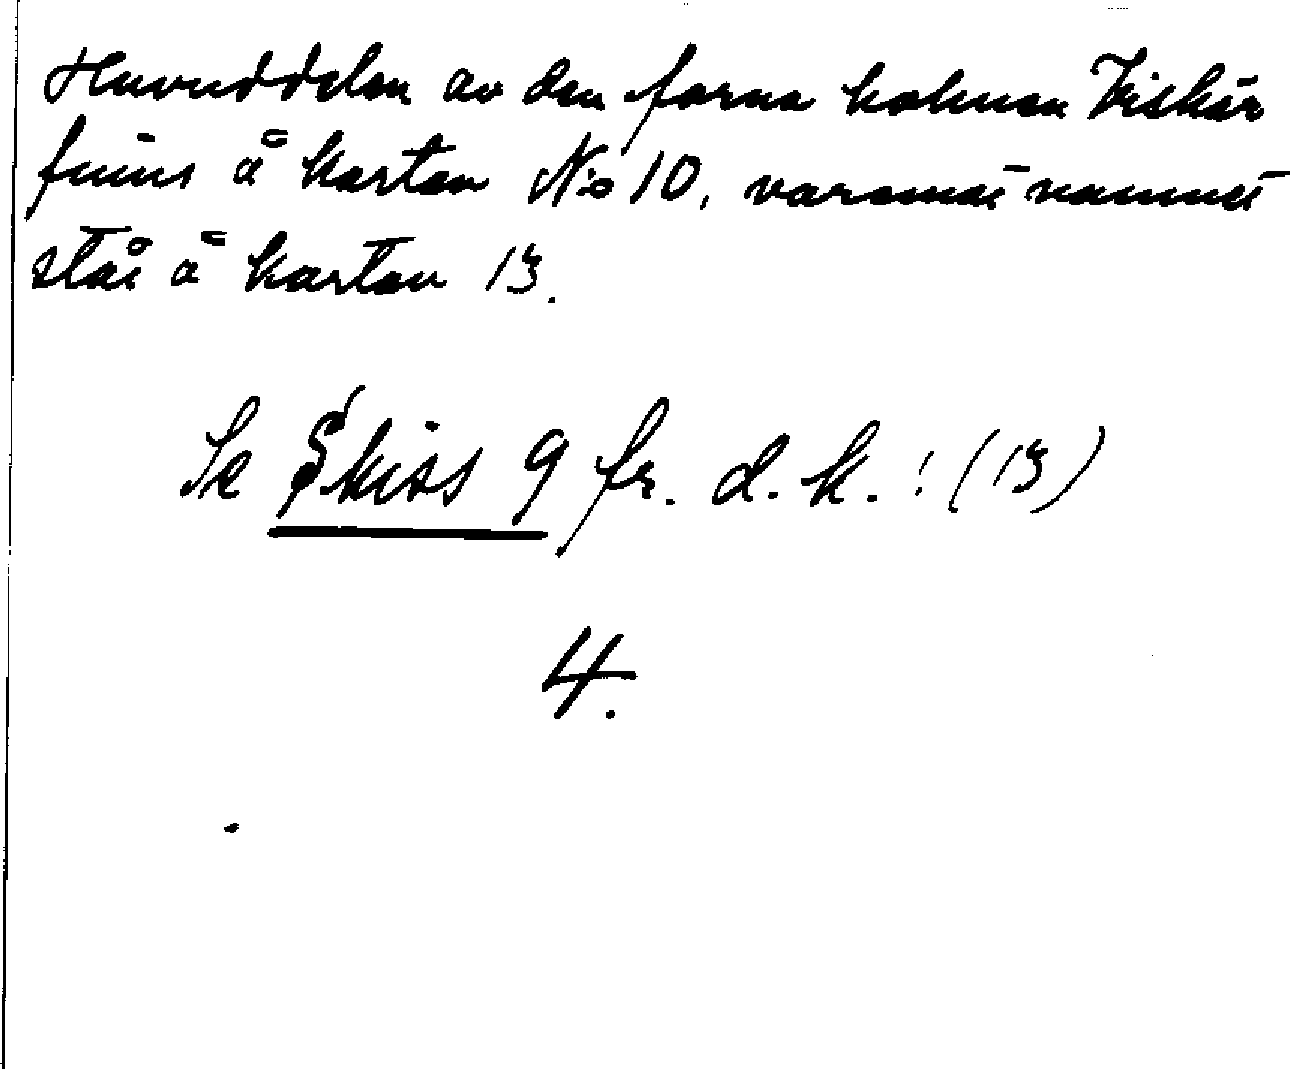 Huvuddelen av den forna holmen Viskär
finns å kartan No 10, varemot namnet
står å kartan 13.
Se Skiss 9 fr. d. k. ! (13)
4.